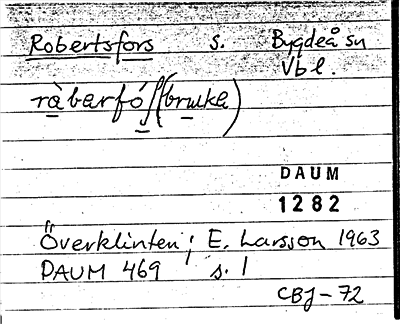 Robertsfors s. Bygdeå sn
Vbl.
ràbarfó̤ʃ(brɯka)
DAUM
1282
Överklinten; E. Larsson 1963
DAUM 469 s. 1
CBJ-72